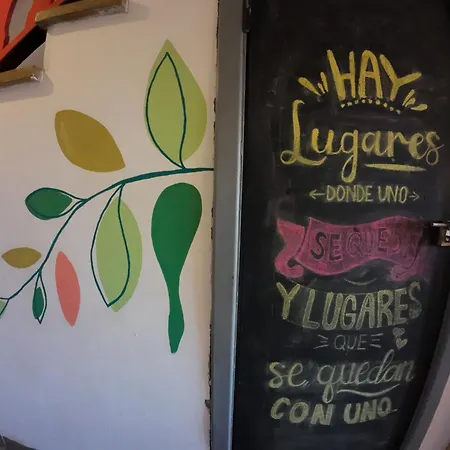 HAY
Lugares
DONDE UNO
SE QUEDA
Y LUGARES
QUE
se quedan
CON UNO.